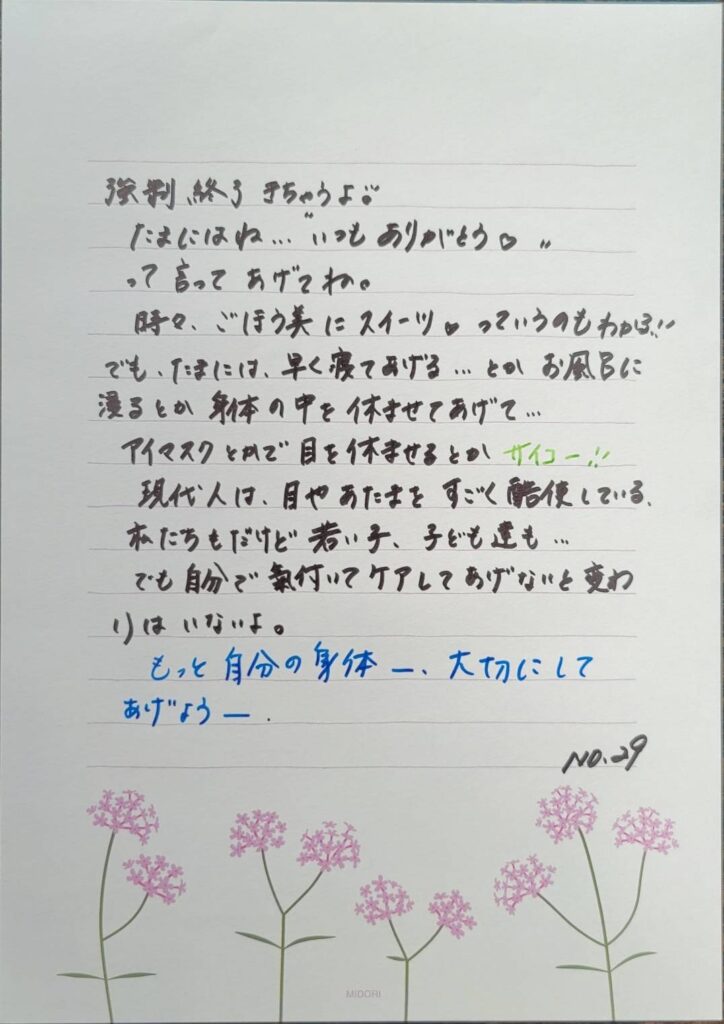 強制終了きちゃうよ!!
たまにはね…"いつもありがとう♡"
って言ってあげてね。
時々、ごほう美にスイーツ♡っていうのもわかる!!
でも、たまには、早く寝てあげる…とかお風呂に
浸るとか身体の中を休ませてあげて…
アイマスクとかで目を休ませるとかサイコー!!
現代人は、目やあたまをすごく酷使している、
私たちもだけど若い子、子ども達も…
でも自分で氣付いてケアしてあげないと変わ
りはいないよ。
もっと自分の身体ー、大切にして
あげようー.
NO.29
MIDORI